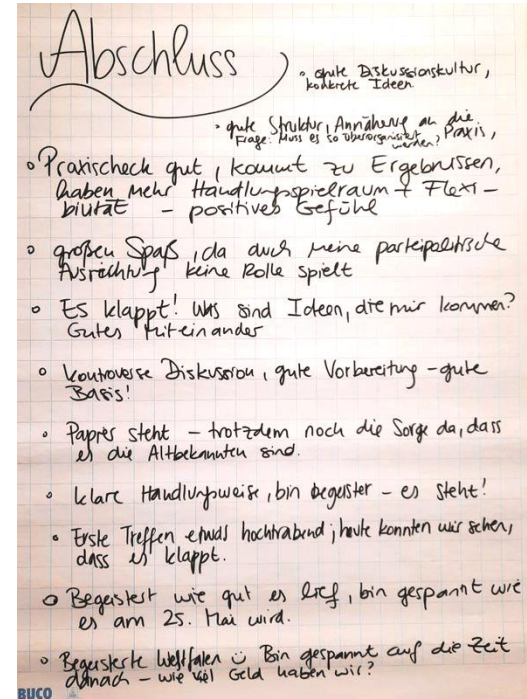 Abschluss
• gute Diskussionskultur,
konkrete Ideen
• gute Struktur, Annäherung an die Praxis,
Frage: Muss es so überorganisiert werden?
• Praxischeck gut, kommt zu Ergebnissen,
haben mehr Handlungsspielraum + Flexi-
bilität – positives Gefühl
• großen Spaß, da auch meine parteipolitische
Ausrichtung keine Rolle spielt
• Es klappt! Was sind Ideen, die mir kommen?
Gutes Miteinander
• kontroverse Diskussion, gute Vorbereitung – gute
Basis!
• Papres steht – trotzdem noch die Sorge da, dass
es die Altbekannten sind.
• klare Handlungsweise, bin begeister – es steht!
• Erste Treffen etwas hochtrabend; heute konnten wir sehen,
dass es klappt.
• Begeistert wie gut es lief, bin gespannt wie
es am 25. Mai wird.
• Begeisterte Westfalen ☺ Bin gespannt auf die Zeit
danach – wie viel Geld haben wir?
BUCO